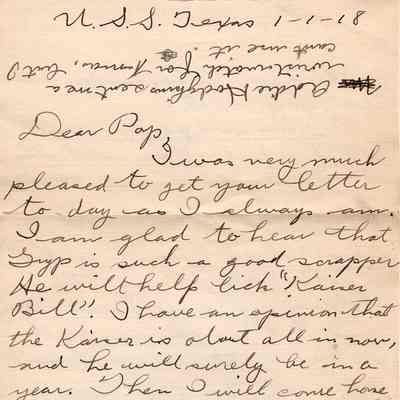 U.S.S. Texas 1-1-18
Addie Hodgkins sent me a
wristwatch from, but I
cant use it.
Dear Pap,
I was very much
pleased to get your letter
to day as I always am.
I am glad to hear that
Gyp is such a good scrapper
He will help lick "Kaiser
Bill". I have an opinion that
the Kaiser is about all in now,
and he will surely be in a
year. Then I will come home